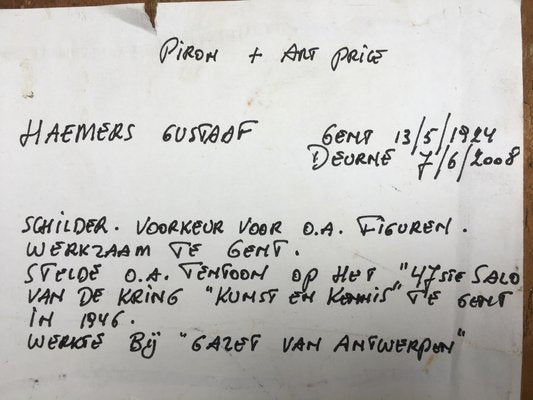 PIRON + ART PRICE
HAEMERS GUSTAAF GENT 13/5/1924
DEURNE 7/6/2008
SCHILDER. VOORKEUR VOOR O.A. FIGUREN.
WERKZAAM TE GENT.
STELDE O.A. TENTOON OP HET "47STE SALO
VAN DE KRING "KUNST EN KENNIS" TE GENT
IN 1946.
WERKTE BIJ "GAZET VAN ANTWERPEN"